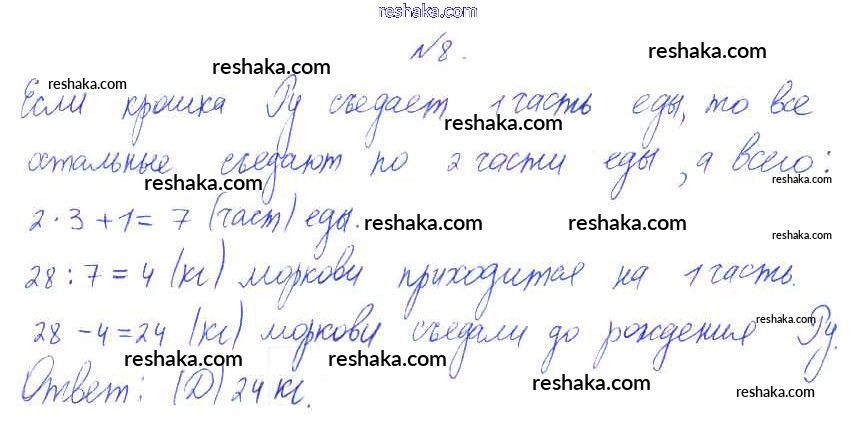 reshaka.com
№8.
reshaka.com
reshaka.com
reshaka.com
Если крошка Ру съедает 1 часть еды, то все
reshaka.com
остальные съедают по 2 части еды, а всего:
reshaka.com
reshaka.com
2·3+1=7 (част) еды.
reshaka.com
reshaka.com
reshaka.com
28:7=4 (кг) моркови приходится на 1 часть.
28-4=24 (кг) моркови съедали до рождения Ру.
reshaka.com
reshaka.com
reshaka.com
reshaka.com
reshaka.com
Ответ: (D) 24 кг.